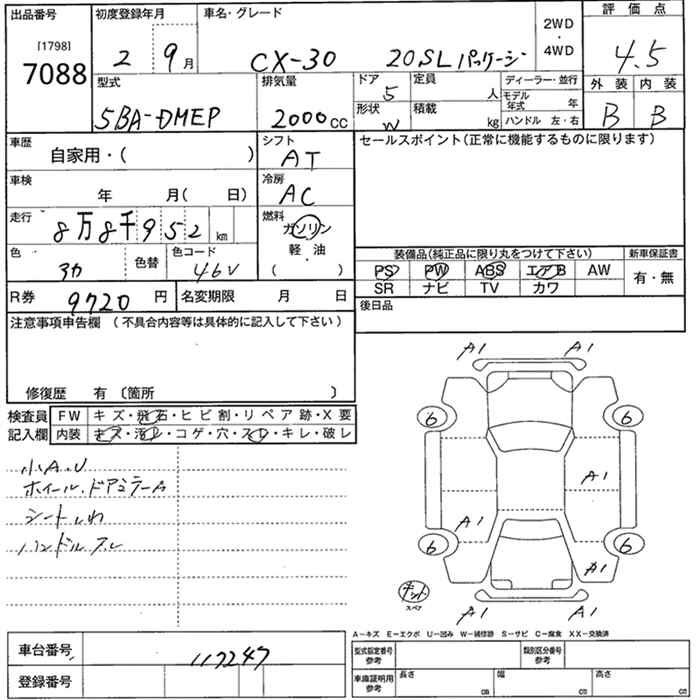 出品番号 初度登録年月 車名・グレード 2WD・4WD 評価点
[1798]
7088
2 9月 CX-30 20SLパッケージ 4.5
型式 排気量 ドア 定員 ディーラー・並行 外装 内装
5BA-DMEP 2000cc 5 人 モデル年式 年 B B
形状 積載 ハンドル 左・右
W kg
車歴 シフト セールスポイント(正常に機能するものに限ります)
自家用・( ) AT
車検 冷房
年 月( 日) AC
走行 燃料
8万8千952km ガソリン
軽・油
( )
色 色替 色コード
3カ 46V
装備品(純正品に限り丸をつけて下さい) 新車保証書
PS PW ABS エアB AW 有・無
SR ナビ TV カワ
R券 9720円 名変期限 月 日 後日品
注意事項申告欄 (不具合内容等は具体的に記入して下さい)
修復歴 有〔箇所 〕
検査員 FW キズ・飛石・ヒビ割・リペア跡・X要
記入欄 内装 キズ・汚レ・コゲ・穴・スレ・キレ・破レ
小A.U
ホイール.ドアミラーA
シートしわ
ハンドルスレ
A1 A1
6 6
A1
A1
6 6
A1
キット
スペア
A1 A1
A-キズ E-エクボ U-凹み W-補修跡 S-サビ C-腐食 XX-交換済
車台番号 117247
登録番号
型式指定番号 参考 類別区分番号 参考
車庫証明用 参考 長さ cm 幅 cm 高さ cm